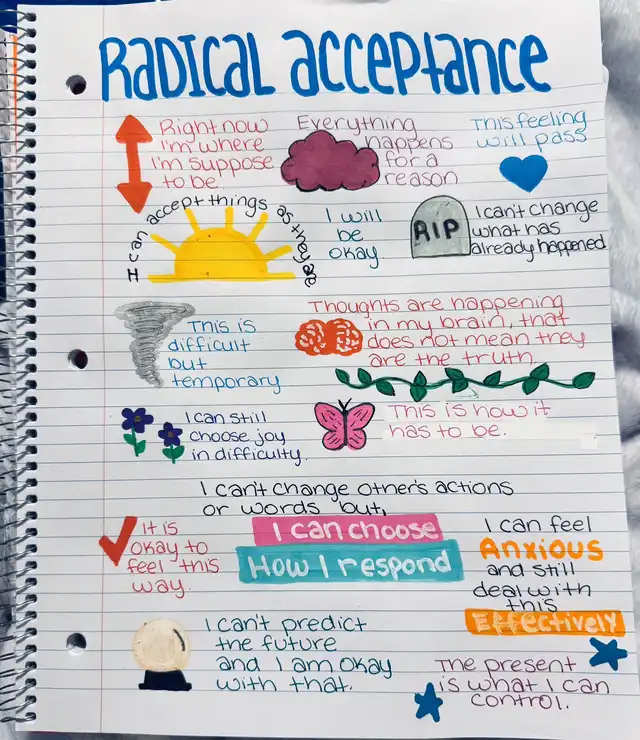 RADICAL acceptance
Right now
I'm where
I'm suppose
to be.
Everything
happens
for a
reason
This feeling
will pass
I can accept things as they are
I will
be
okay
RIP
I can't change
what has
already happened
This is
difficult
but
temporary
Thoughts are happening
in my brain, that
does not mean they
are the truth.
I can still
choose joy
in difficulty.
This is how it
has to be.
I can't change other's actions
or words but,
I can choose
How I respond
It is
okay to
feel this
way.
I can feel
Anxious
and still
deal with
this
Effectively
I can't predict
the future
and I am okay
with that.
The present
is what I can
control.